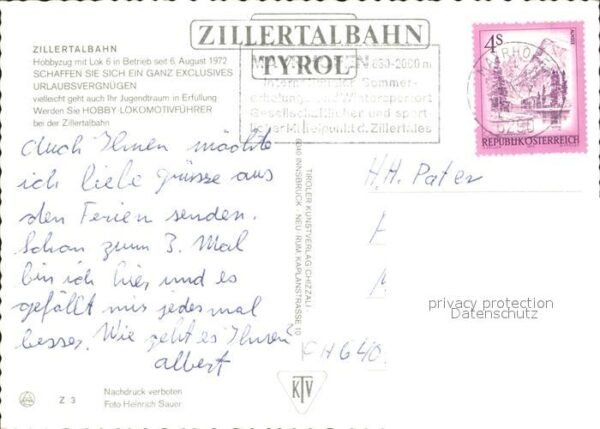 ZILLERTALBAHN
TYROL
ZILLERTALBAHN
Hobbyzug mit Lok 6 in Betrieb seit 6. August 1972
SCHAFFEN SIE SICH EIN GANZ EXCLUSIVES
URLAUBSVERGNÜGEN
vielleicht geht auch Ihr Jugendtraum in Erfüllung
Werden Sie HOBBY-LOKOMOTIVFÜHRER
bei der Zillertalbahn
MAYRHOFEN 630-2000 m
Internationaler Sommer-
erholungs- und Wintersportort
Gesellschaftlicher und sport-
licher Mittelpunkt d. Zillertales
4S
REPUBLIK ÖSTERREICH
6290
auch Ihnen möchte
ich liebe grüsse aus
den Ferien senden.
Schon zum 3. Mal
bin ich hier und es
gefällt mir jedesmal
besser. Wie geht es Ihnen
albert
H.H. Pater
CH 640
TIROLER KUNSTVERLAG CHIZZALI
6040 INNSBRUCK - NEU RUM, KAPLANSTRASSE 10
privacy protection
Datenschutz
KTV
Z 3
Nachdruck verboten
Foto Heinrich Sauer